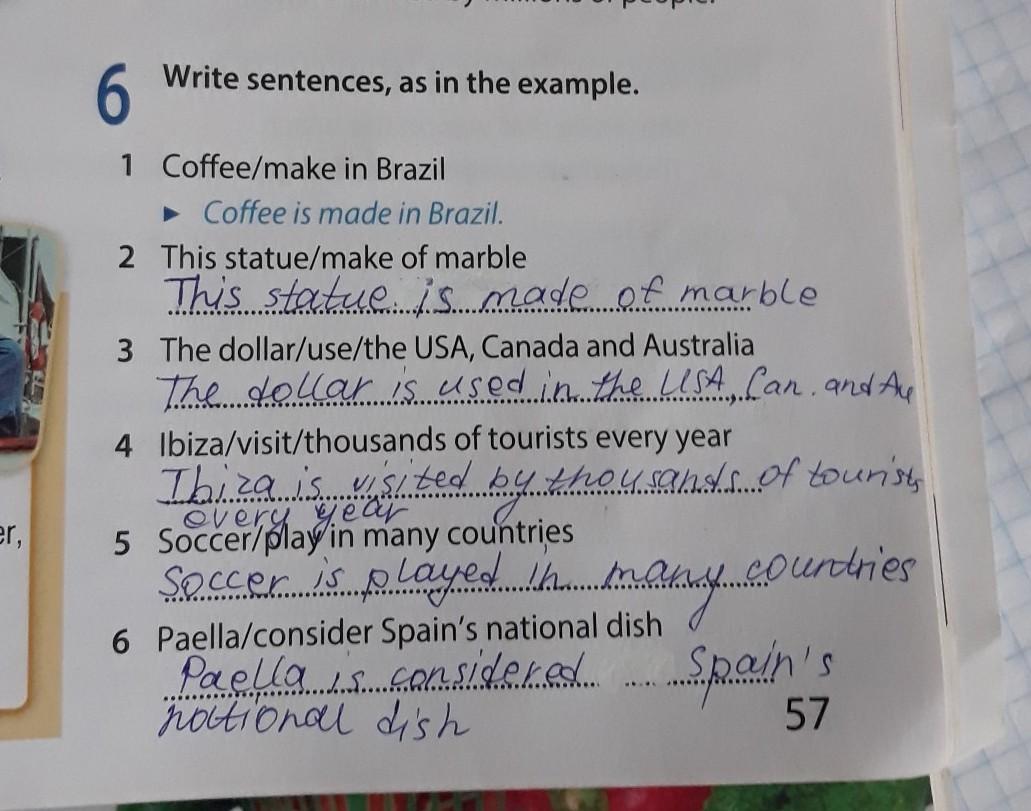 by millions of people.
6 Write sentences, as in the example.
1 Coffee/make in Brazil
► Coffee is made in Brazil.
2 This statue/make of marble
This statue is made of marble
3 The dollar/use/the USA, Canada and Australia
The dollar is used in the USA, Can. and Au
4 Ibiza/visit/thousands of tourists every year
Ibiza is visited by thousands of tourists
every year
5 Soccer/play in many countries
Soccer is played in many countries
er,
6 Paella/consider Spain's national dish
Paella is considered Spain's
national dish
57